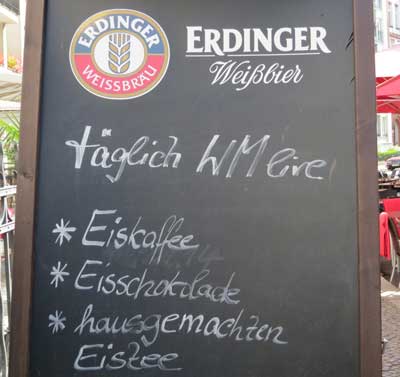 ERDINGER
WEISSBRÄU
ERDINGER
Weißbier
täglich WM live
* Eiskaffee
* Eisschokolade
* hausgemachten
Eistee